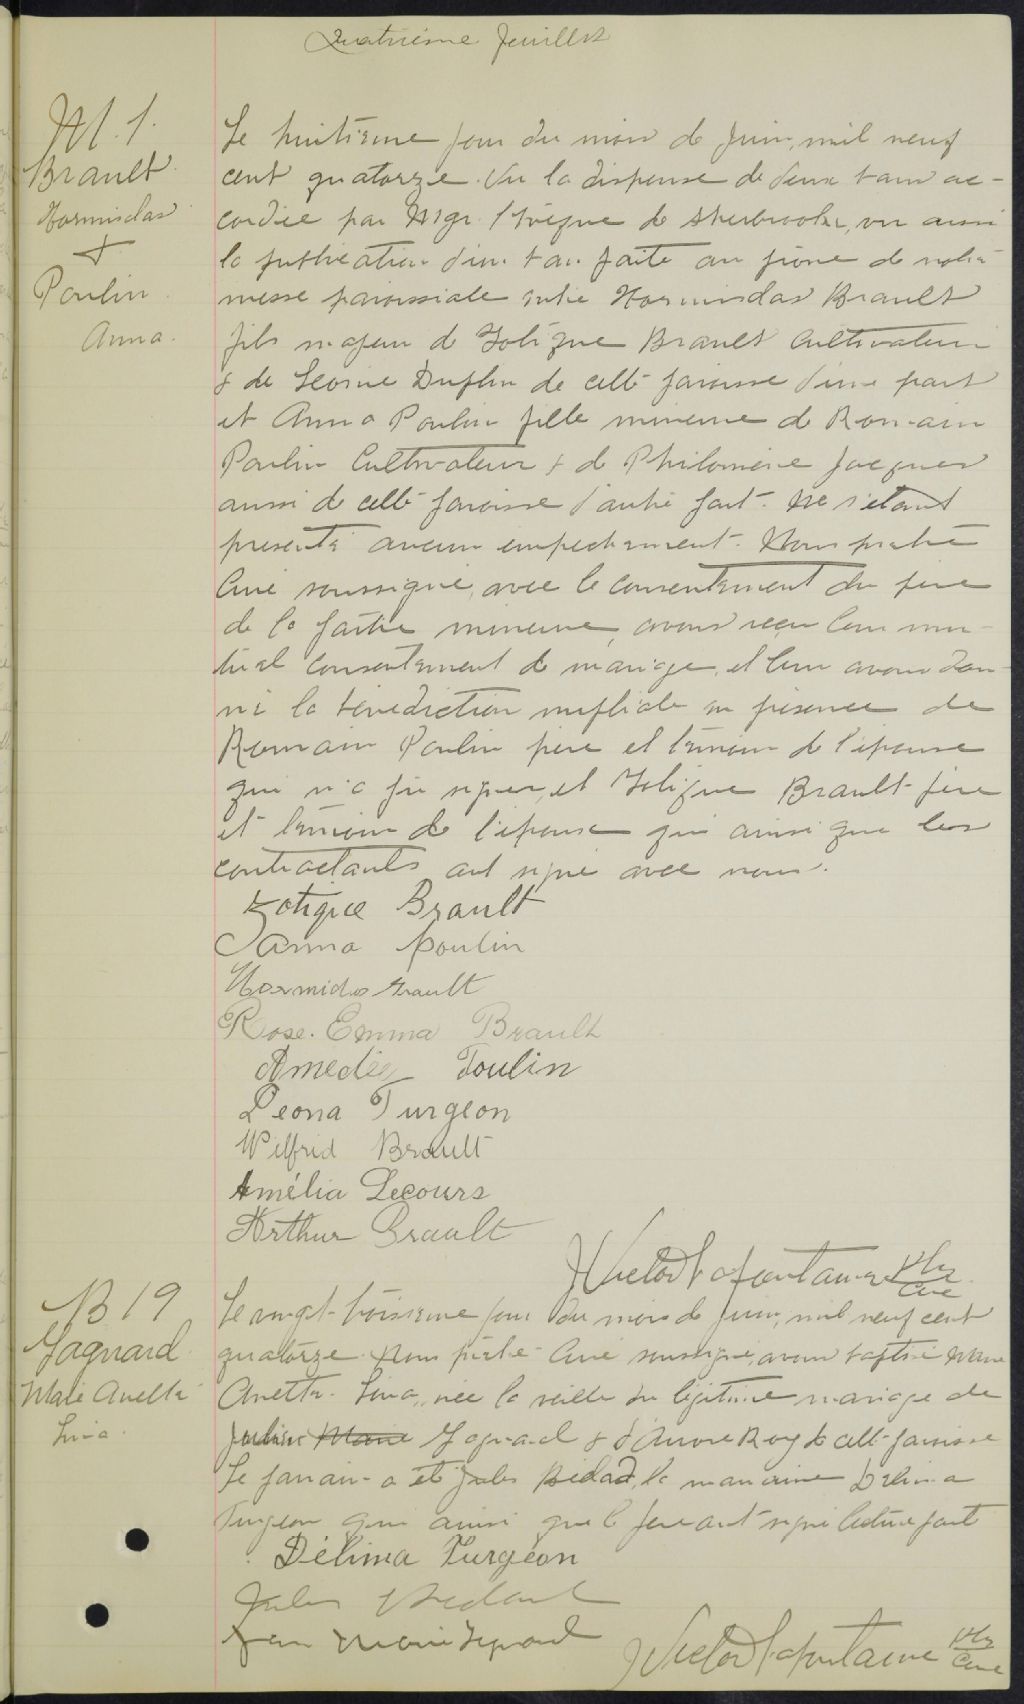 Quatrième feuillet
M. 1.
Brault
Hormisdas
&
Poulin
Anna.
Le huitième jour du mois de Juin, mil neuf
cent quatorze. Vu la dispense de deux bans ac-
cordée par Mgr. l'évêque de Sherbrooke, vu aussi
la publication d'un ban faite au prône de notre
messe paroissiale entre Hormisdas Brault
fils majeur de Zotique Brault Cultivateur
& de Leonie Duplin de cette paroisse d'une part
et Anna Poulin fille mineure de Romain
Poulin Cultivateur & de Philomène Jacques
aussi de cette paroisse d'autre part. Ne s'étant
présenté aucun empêchement. Nous prêtre
Curé soussigné, avec le consentement du père
de la partie mineure, avons reçu leur mu-
tuel consentement de mariage, et leur avons don-
né la bénédiction nuptiale en présence de
Romain Poulin père et témoin de l'épouse
qui n'a pu signer, et Zotique Brault père
et témoin de l'époux qui ainsi que les
contractants ont signé avec nous.
Zotique Brault
Anna Poulin
Hormidas Brault
Rose-Emma Brault
Amedée Poulin
Leona Turgeon
Wilfrid Brault
Amélia Lecours
Arthur Brault
J Victor Lafontaine Ptre
Curé
B 19
Gagnard
Marie Anette
Lina.
Le vingt-troisième jour du mois de Juin, mil neuf cent
quatorze. Nous prêtre Curé soussigné, avons baptisé Marie
Anette Lina, née la veille du légitime mariage de
Marie Gagnard & d'Aurore Roy de cette paroisse
Le parrain a été Jules Bédard, la marraine Délima
Turgeon qui ainsi que le père ont signé lecture faite
Délima Turgéon
Jules Bedard
Jean Marie Gagnard
J Victor Lafontaine Ptre
Curé